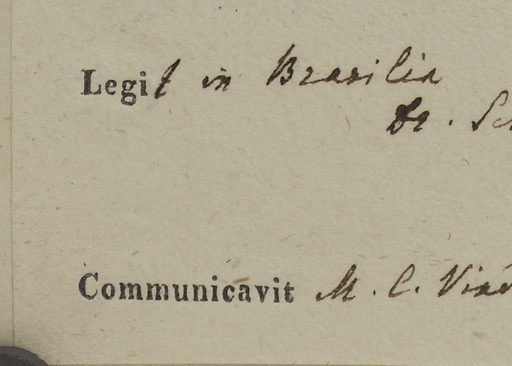 Legit in Brasilia
Dr.
Communicavit M. C.